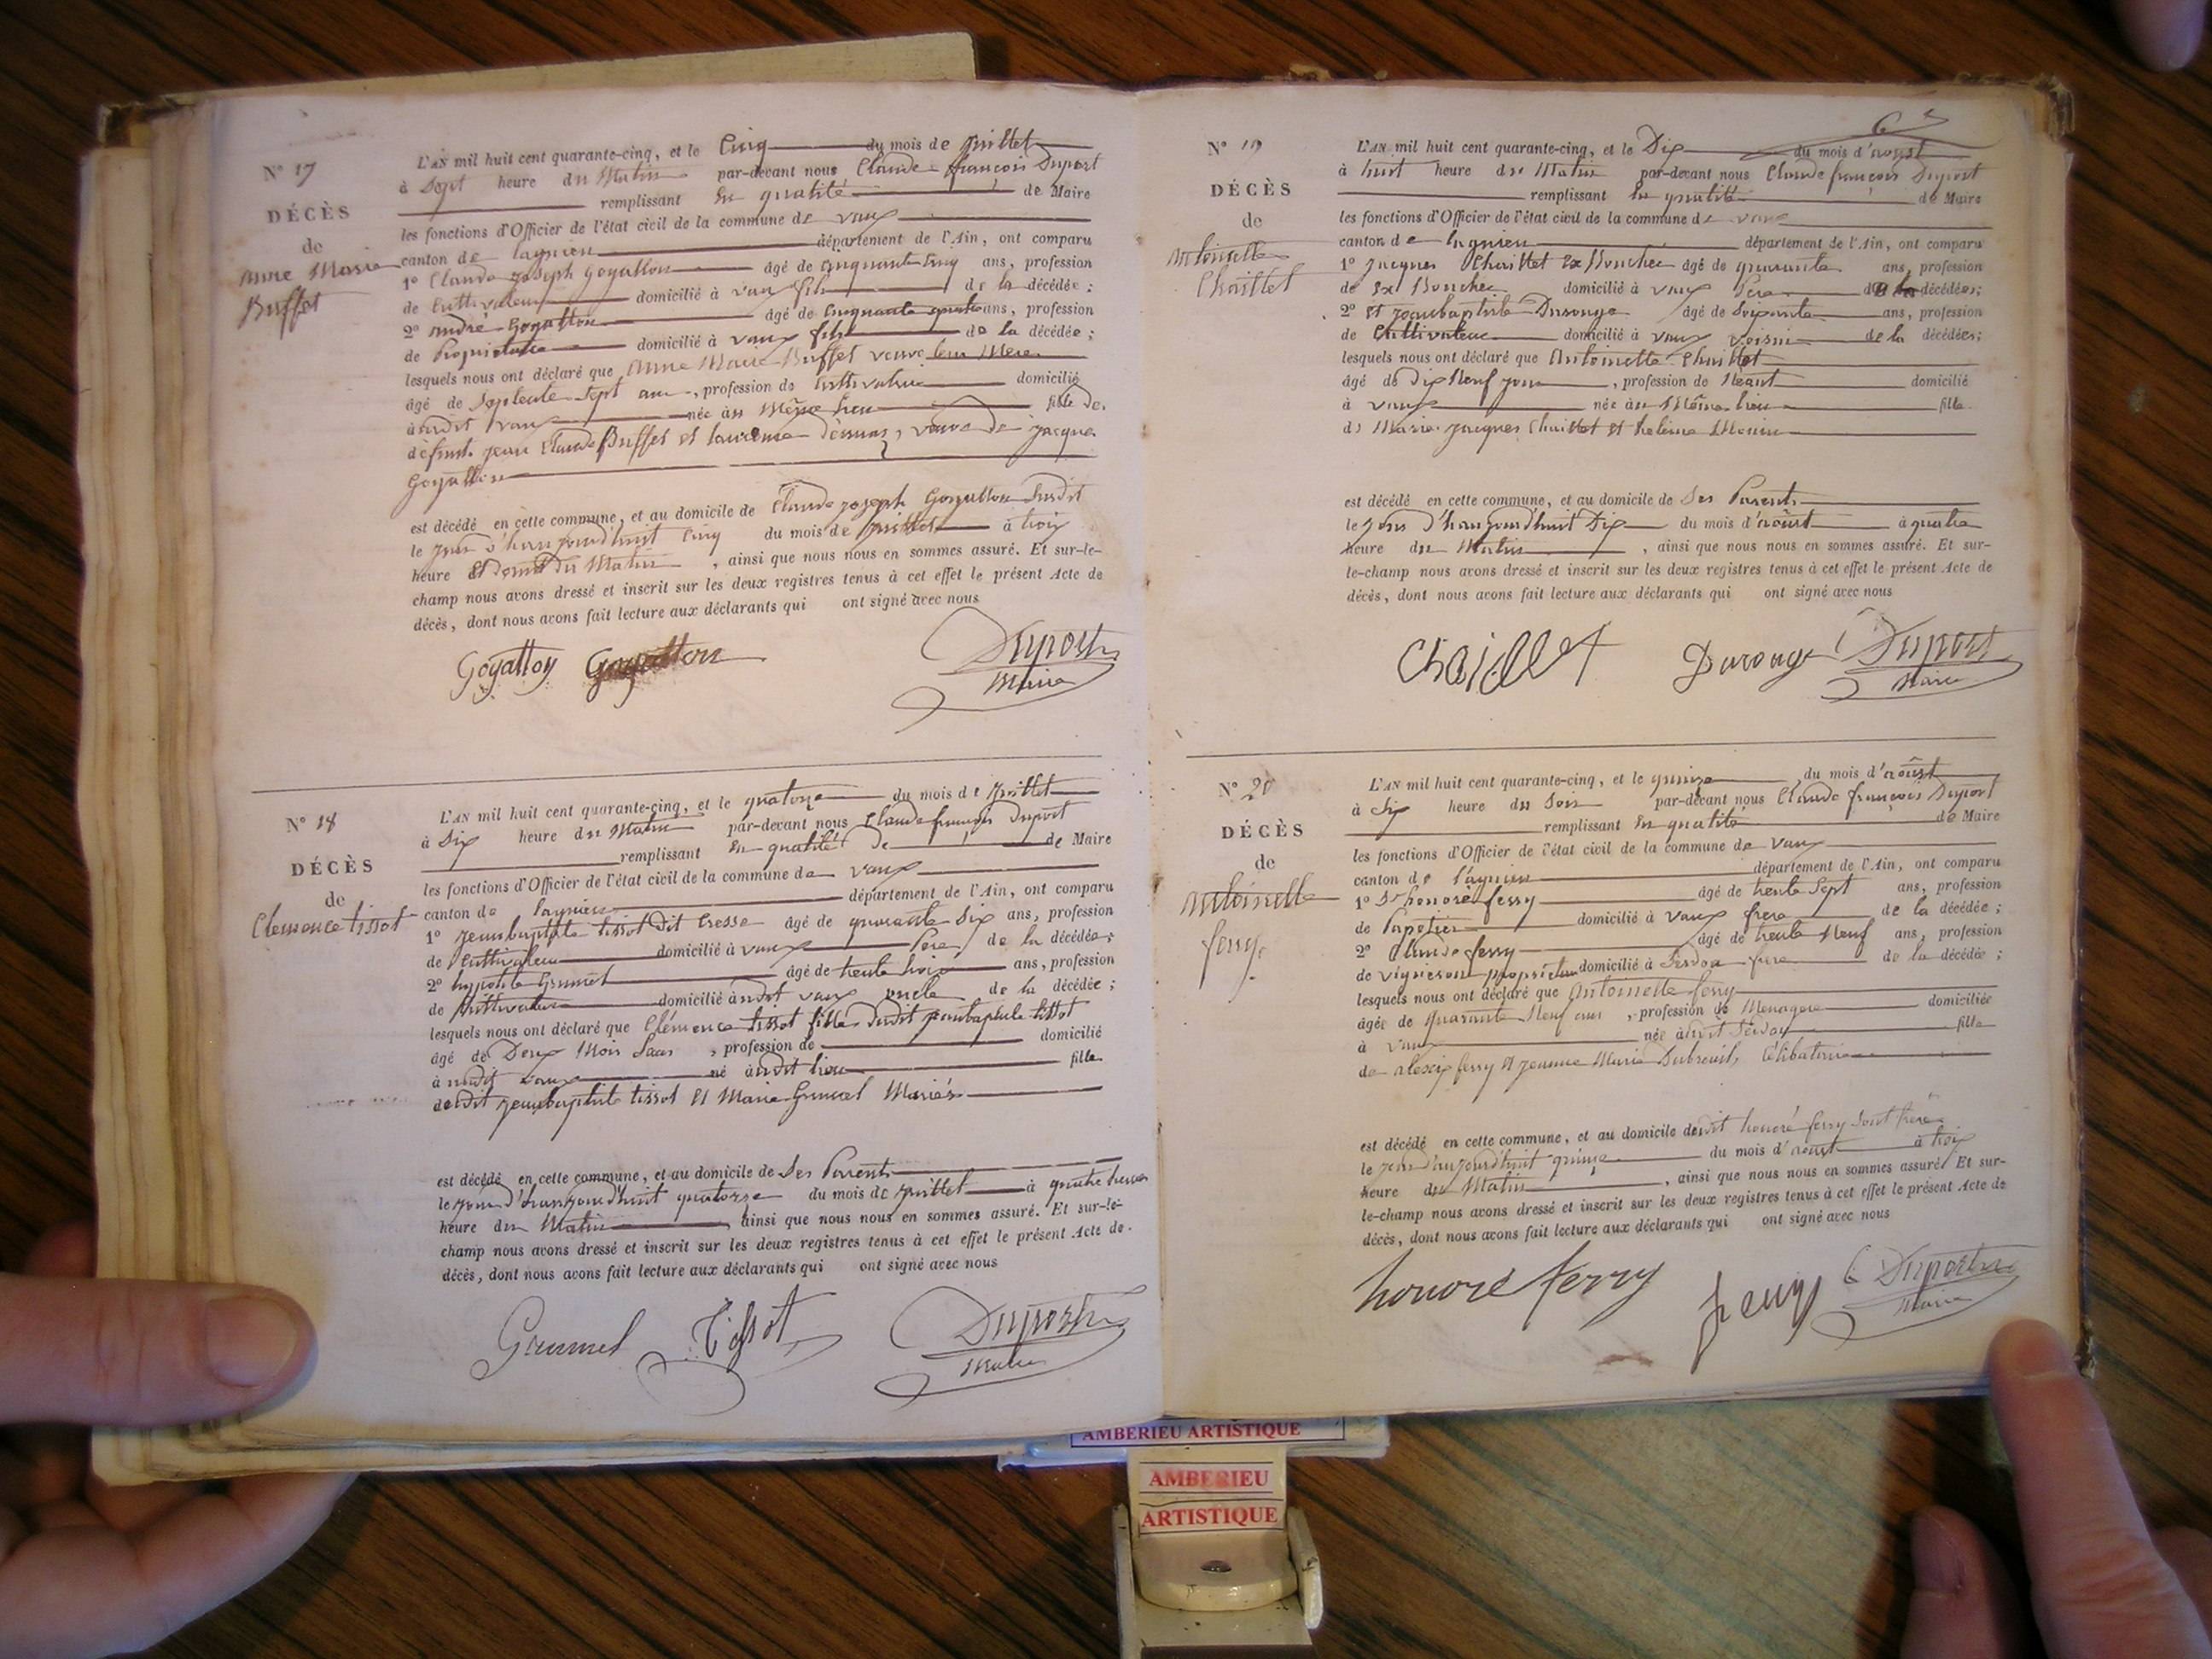 N° 17
DÉCÈS
de
Anne Marie
Buffet
L'AN mil huit cent quarante-cinq, et le Cinq du mois de juillet
à Sept heure du Matin par-devant nous Claude françois Duport
remplissant En qualité de Maire
les fonctions d'Officier de l'état civil de la commune de vaux
canton de lagnieu département de l'Ain, ont comparu
1° Claude joseph Goyatton âgé de cinquante cinq ans, profession
de Cultivateur domicilié à vaux fils de la décédée ;
2° andré Goyatton âgé de Cinquante quatre ans, profession
de Propriétaire domicilié à vaux fils de la décédée ;
lesquels nous ont déclaré que Anne Marie Buffet veuve leur Mere
âgé de Septente Sept ans, profession de Cultivatrice domicilié
à udit vaux née au Même lieu fille de
défunt jean Claude Buffet et laurence veuve de jacque
Goyatton
est décédé en cette commune, et au domicile de Claude joseph Goyatton Susdit
le jour d'haujourd'huit Cinq du mois de juillet à trois
heure et demi du Matin, ainsi que nous nous en sommes assuré. Et sur-le-
champ nous avons dressé et inscrit sur les deux registres tenus à cet effet le présent Acte de
décès, dont nous avons fait lecture aux déclarants qui ont signé avec nous
Goyatton Goyatton Duport
Maire
N° 18
DÉCÈS
de
Clemence tissot
L'AN mil huit cent quarante-cinq, et le quatorze du mois de juillet
à Six heure du Matin par-devant nous Claude françois Duport
remplissant En qualité de de Maire
les fonctions d'Officier de l'état civil de la commune de vaux
canton de lagnieu département de l'Ain, ont comparu
1° jeanbaptiste tissot dit Cresse âgé de quarante Six ans, profession
de Cultivateur domicilié à vaux Pere de la décédée ;
2° hypolite Grumel âgé de trente trois ans, profession
de Cultivateur domicilié àudit vaux oncle de la décédée ;
lesquels nous ont déclaré que Clémence tissot fille dudit jeanbaptiste tissot
âgé de Deux Mois, profession de domicilié
à udit vaux né àudit lieu fille
dudit jeanbaptiste tissot et Marie Grumel Mariés
est décédé en cette commune, et au domicile de Ses Parents
le jour d'haujourd'huit quatorze du mois de juillet à quatre heures
heure du Matin, ainsi que nous nous en sommes assuré. Et sur-le-
champ nous avons dressé et inscrit sur les deux registres tenus à cet effet le présent Acte de
décès, dont nous avons fait lecture aux déclarants qui ont signé avec nous
Grumel Tissot Duport
Maire
N° 19
DÉCÈS
de
Antoinette
Chaillet
L'AN mil huit cent quarante-cinq, et le Dix du mois d'aoust
à huit heure du Matin par-devant nous Claude françois Duport
remplissant En qualité de Maire
les fonctions d'Officier de l'état civil de la commune de vaux
canton de lagnieu département de l'Ain, ont comparu
1° jacques Chaillet Ex Boucher âgé de quarante ans, profession
de Ex Boucher domicilié à vaux Pere de la décédées;
2° Et jeanbaptiste Durouge âgé de Soixante ans, profession
de Cultivateur domicilié à vaux voisin de la décédées;
lesquels nous ont déclaré que Antoinette Chaillet
âgé de Dix Neuf jour, profession de Néant domicilié
à vaux née au Même lieu fille
de Marie jacques Chaillet et heleine
est décédé en cette commune, et au domicile de Ses Parents
le jour d'haujourd'huit Dix du mois d'aoust à quatre
heure du Matin, ainsi que nous nous en sommes assuré. Et sur-
le-champ nous avons dressé et inscrit sur les deux registres tenus à cet effet le présent Acte de
décès, dont nous avons fait lecture aux déclarants qui ont signé avec nous
Chaillet Durouge Duport
Maire
N° 20
DÉCÈS
de
Antoinette
ferry
L'AN mil huit cent quarante-cinq, et le quinze du mois d'aoust
à Six heure du Soir par-devant nous Claude françois Duport
remplissant En qualité de Maire
les fonctions d'Officier de l'état civil de la commune de vaux
canton de lagnieu département de l'Ain, ont comparu
1° Sr honoré ferry âgé de trente Sept ans, profession
de Papetier domicilié à vaux frere de la décédée ;
2° Claude ferry âgé de trente Neuf ans, profession
de vigneron propriétaire domicilié à frere de la décédée ;
lesquels nous ont déclaré que Antoinette ferry
âgée de quarante Neuf ans, profession de Menagere domiciliée
à vaux née àudit fille
de alexis ferry et jeanne Marie Dubreuil, Célibataire
est décédé en cette commune, et au domicile dudit honoré ferry Sont frere
le jour d'aujourd'huit quinze du mois d'aoust à trois
heure du Matin, ainsi que nous nous en sommes assuré. Et sur-
le-champ nous avons dressé et inscrit sur les deux registres tenus à cet effet le présent Acte de
décès, dont nous avons fait lecture aux déclarants qui ont signé avec nous
honoré ferry ferry Duport
Maire
AMBERIEU ARTISTIQUE
AMBERIEU
ARTISTIQUE